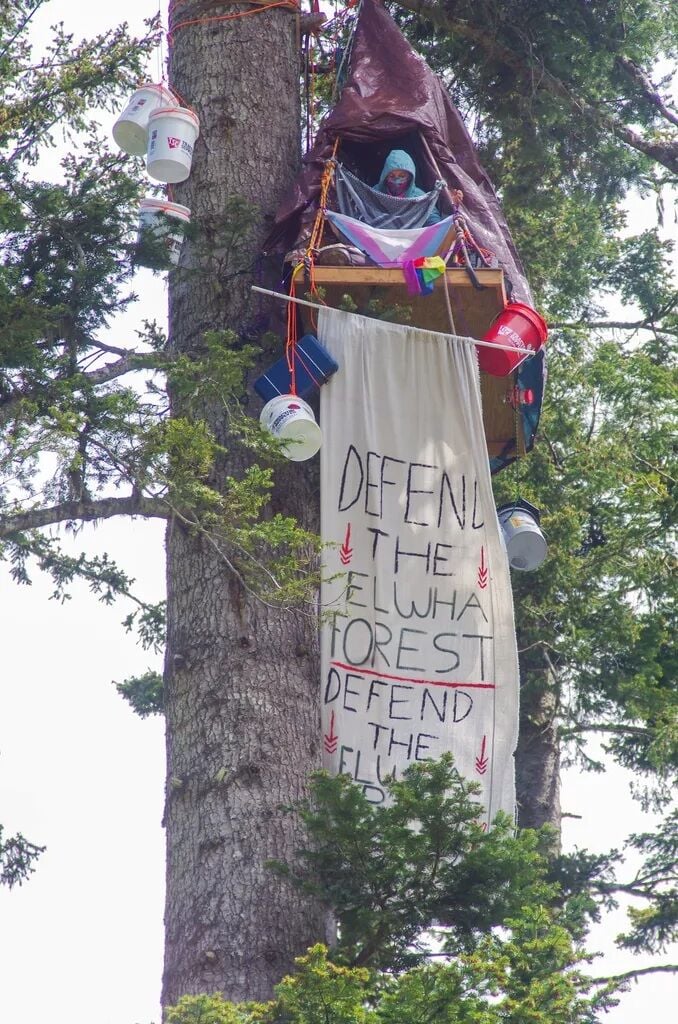 DEFEND
THE
ELWHA
FOREST
DEFEND
THE